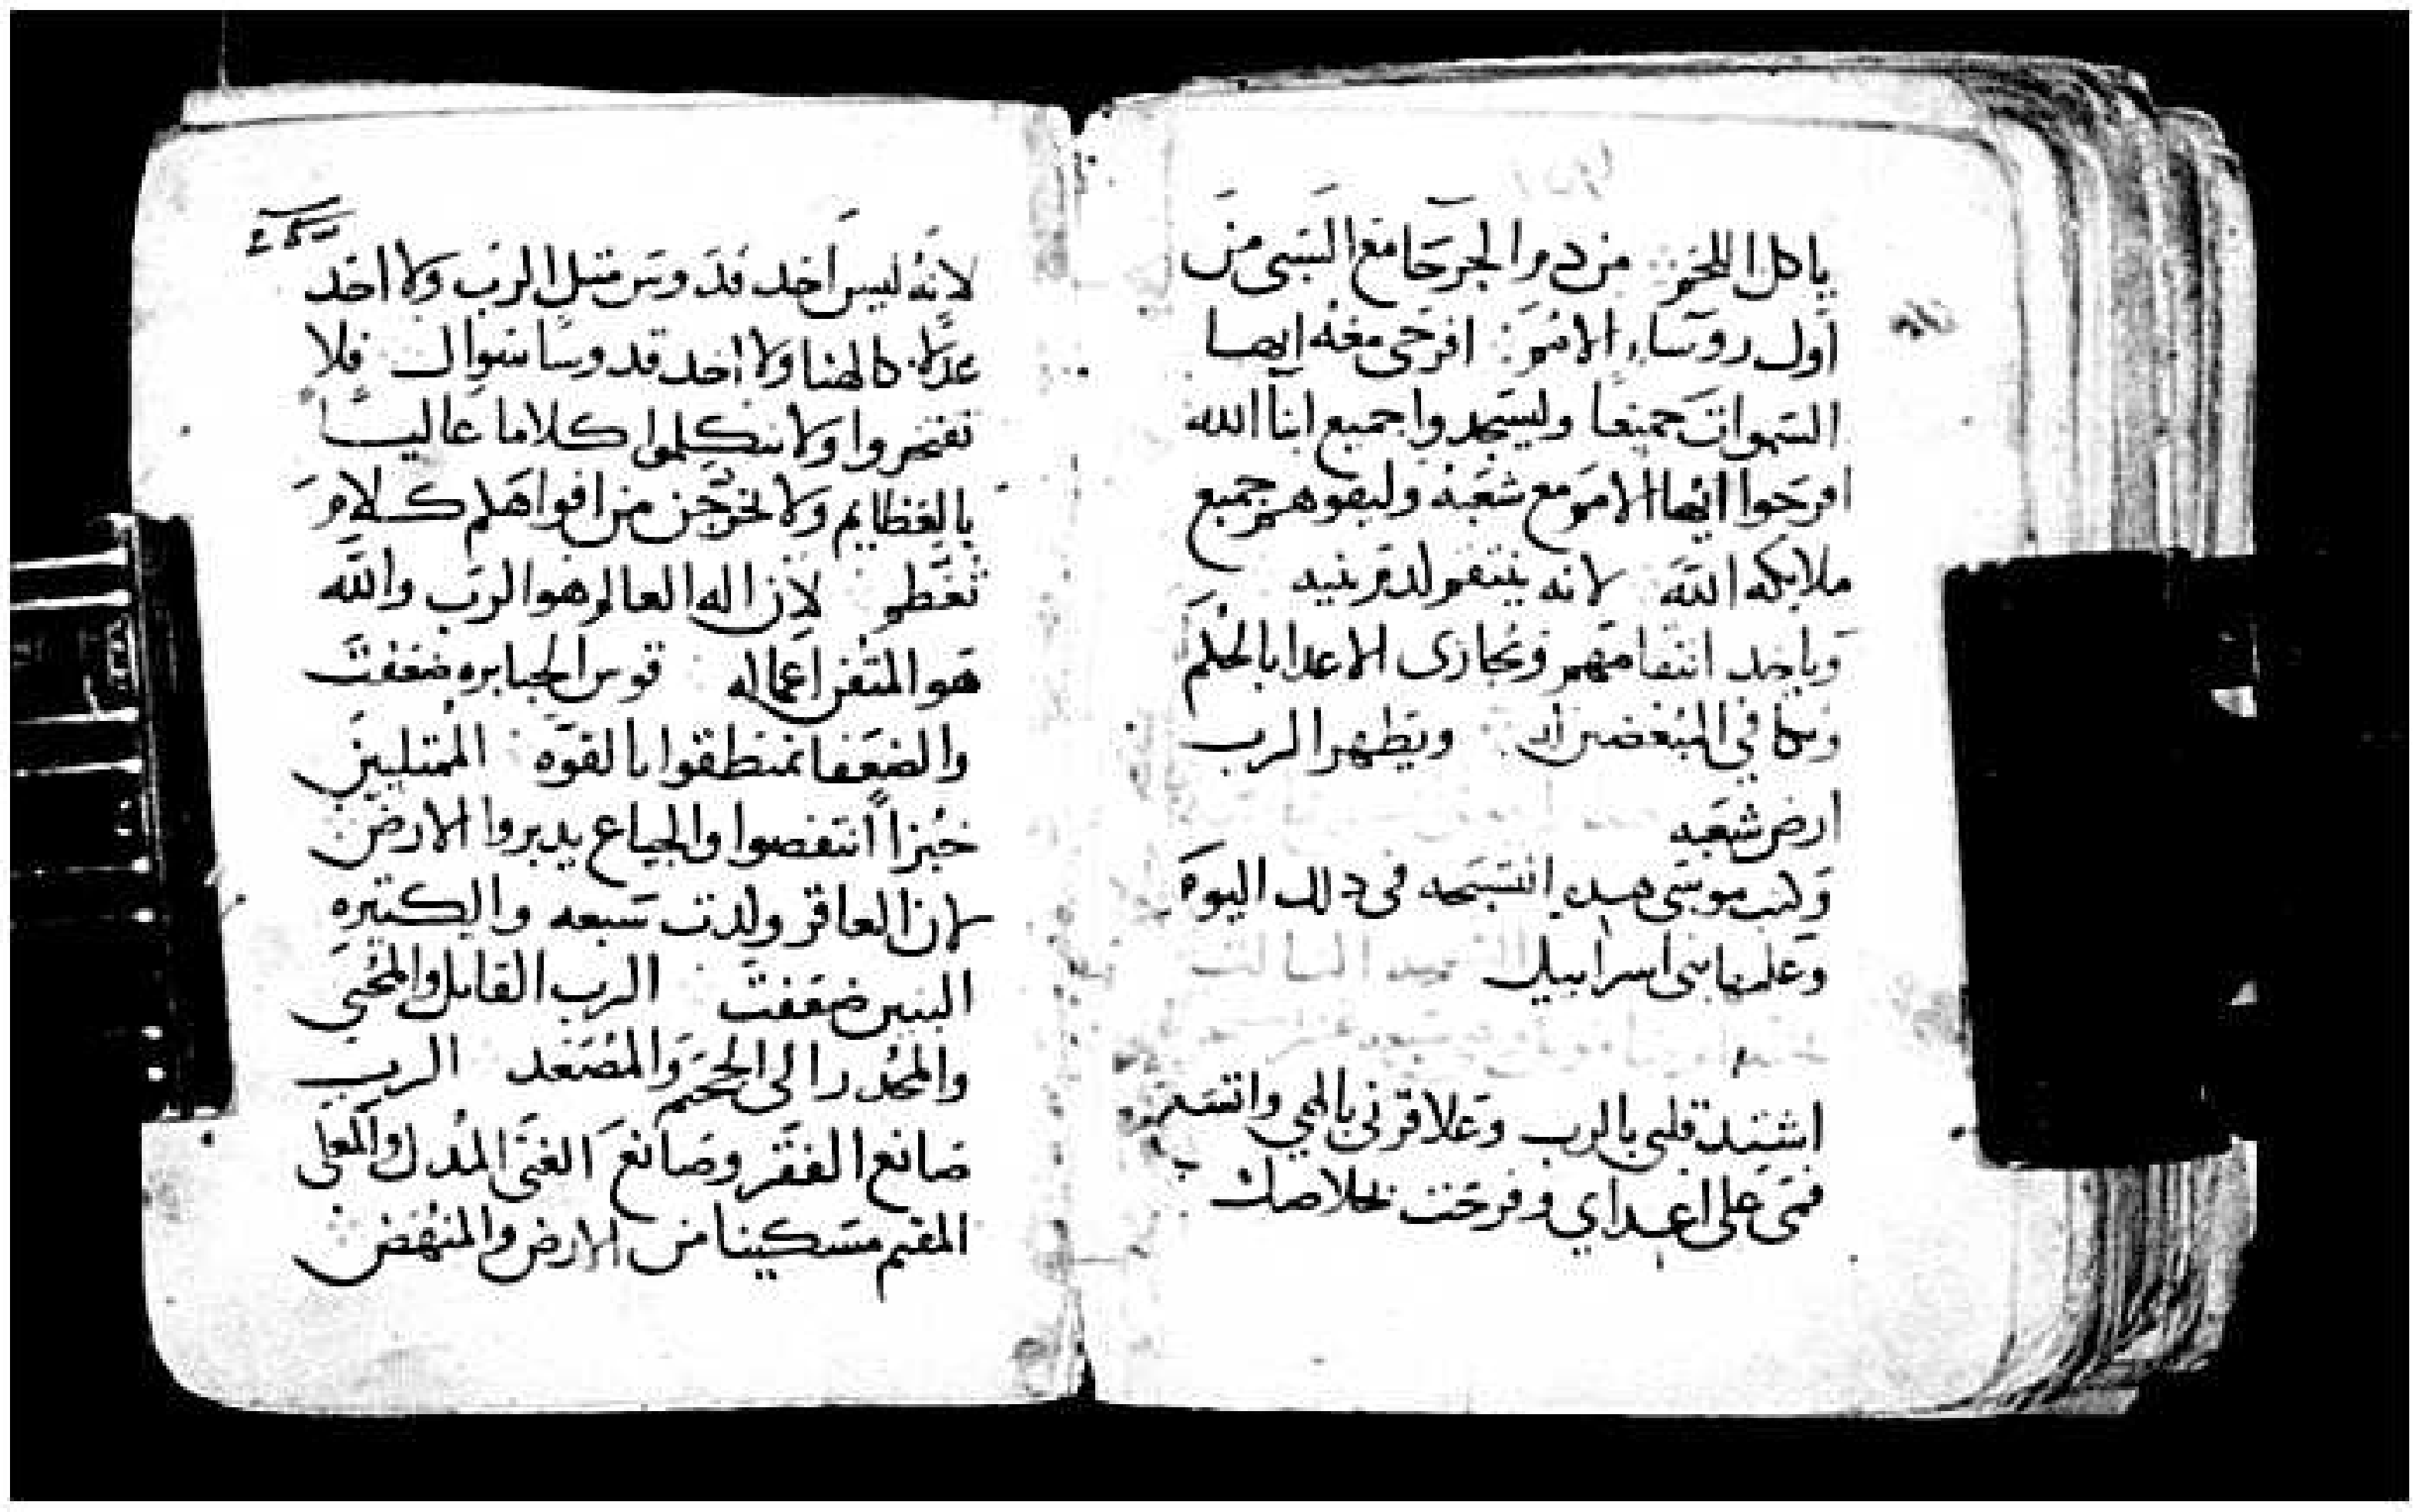 ياكل اللحم من دم الجرحا مع السبى من
اول روساء الامم افرحى معه ايها
السموات جميعا وليسجدوا جميع ابنا الله
افرحوا ايها الامم مع شعبه وليقوهم جميع
ملايكه الله لانه ينتقم لدم بنيه
وياخد انتقامهم ويجازى الاعدا بالحكم
ويكافي المبغضين ويطهر الرب
ارض شعبه
وكتب موسى هده التسبحه فى دلك اليوم
وعلمها بنى اسراييل
اشتد قلبي بالرب وعلا قرنى بالهي واتسع
فمى على اعداي وفرحت بخلاصك
لانه ليس احد قدوس مثل الرب ولا احد
عدلا كالهنا ولا احد قدوسا سواك فلا
تفتخروا ولا تتكلموا كلاما عاليا
بالعظايم ولا تخرجن من افواهكم كلام
تعظم لان اله العالم هو الرب والله
هو المتقن اعماله قوس الجبابره ضعفت
والضعفا تمنطقوا بالقوه الممتليين
خبزا انتقصوا والجياع يدبروا الارض
لان العاقر ولدت سبعه والكتيره
البنين ضعفت الرب القاتل والمحي
والمحدر الى الجحيم والمصعد الرب
صانع الفقر وصانع الغنى المدل والمعلى
المقيم مسكينا من الارض والمنهض